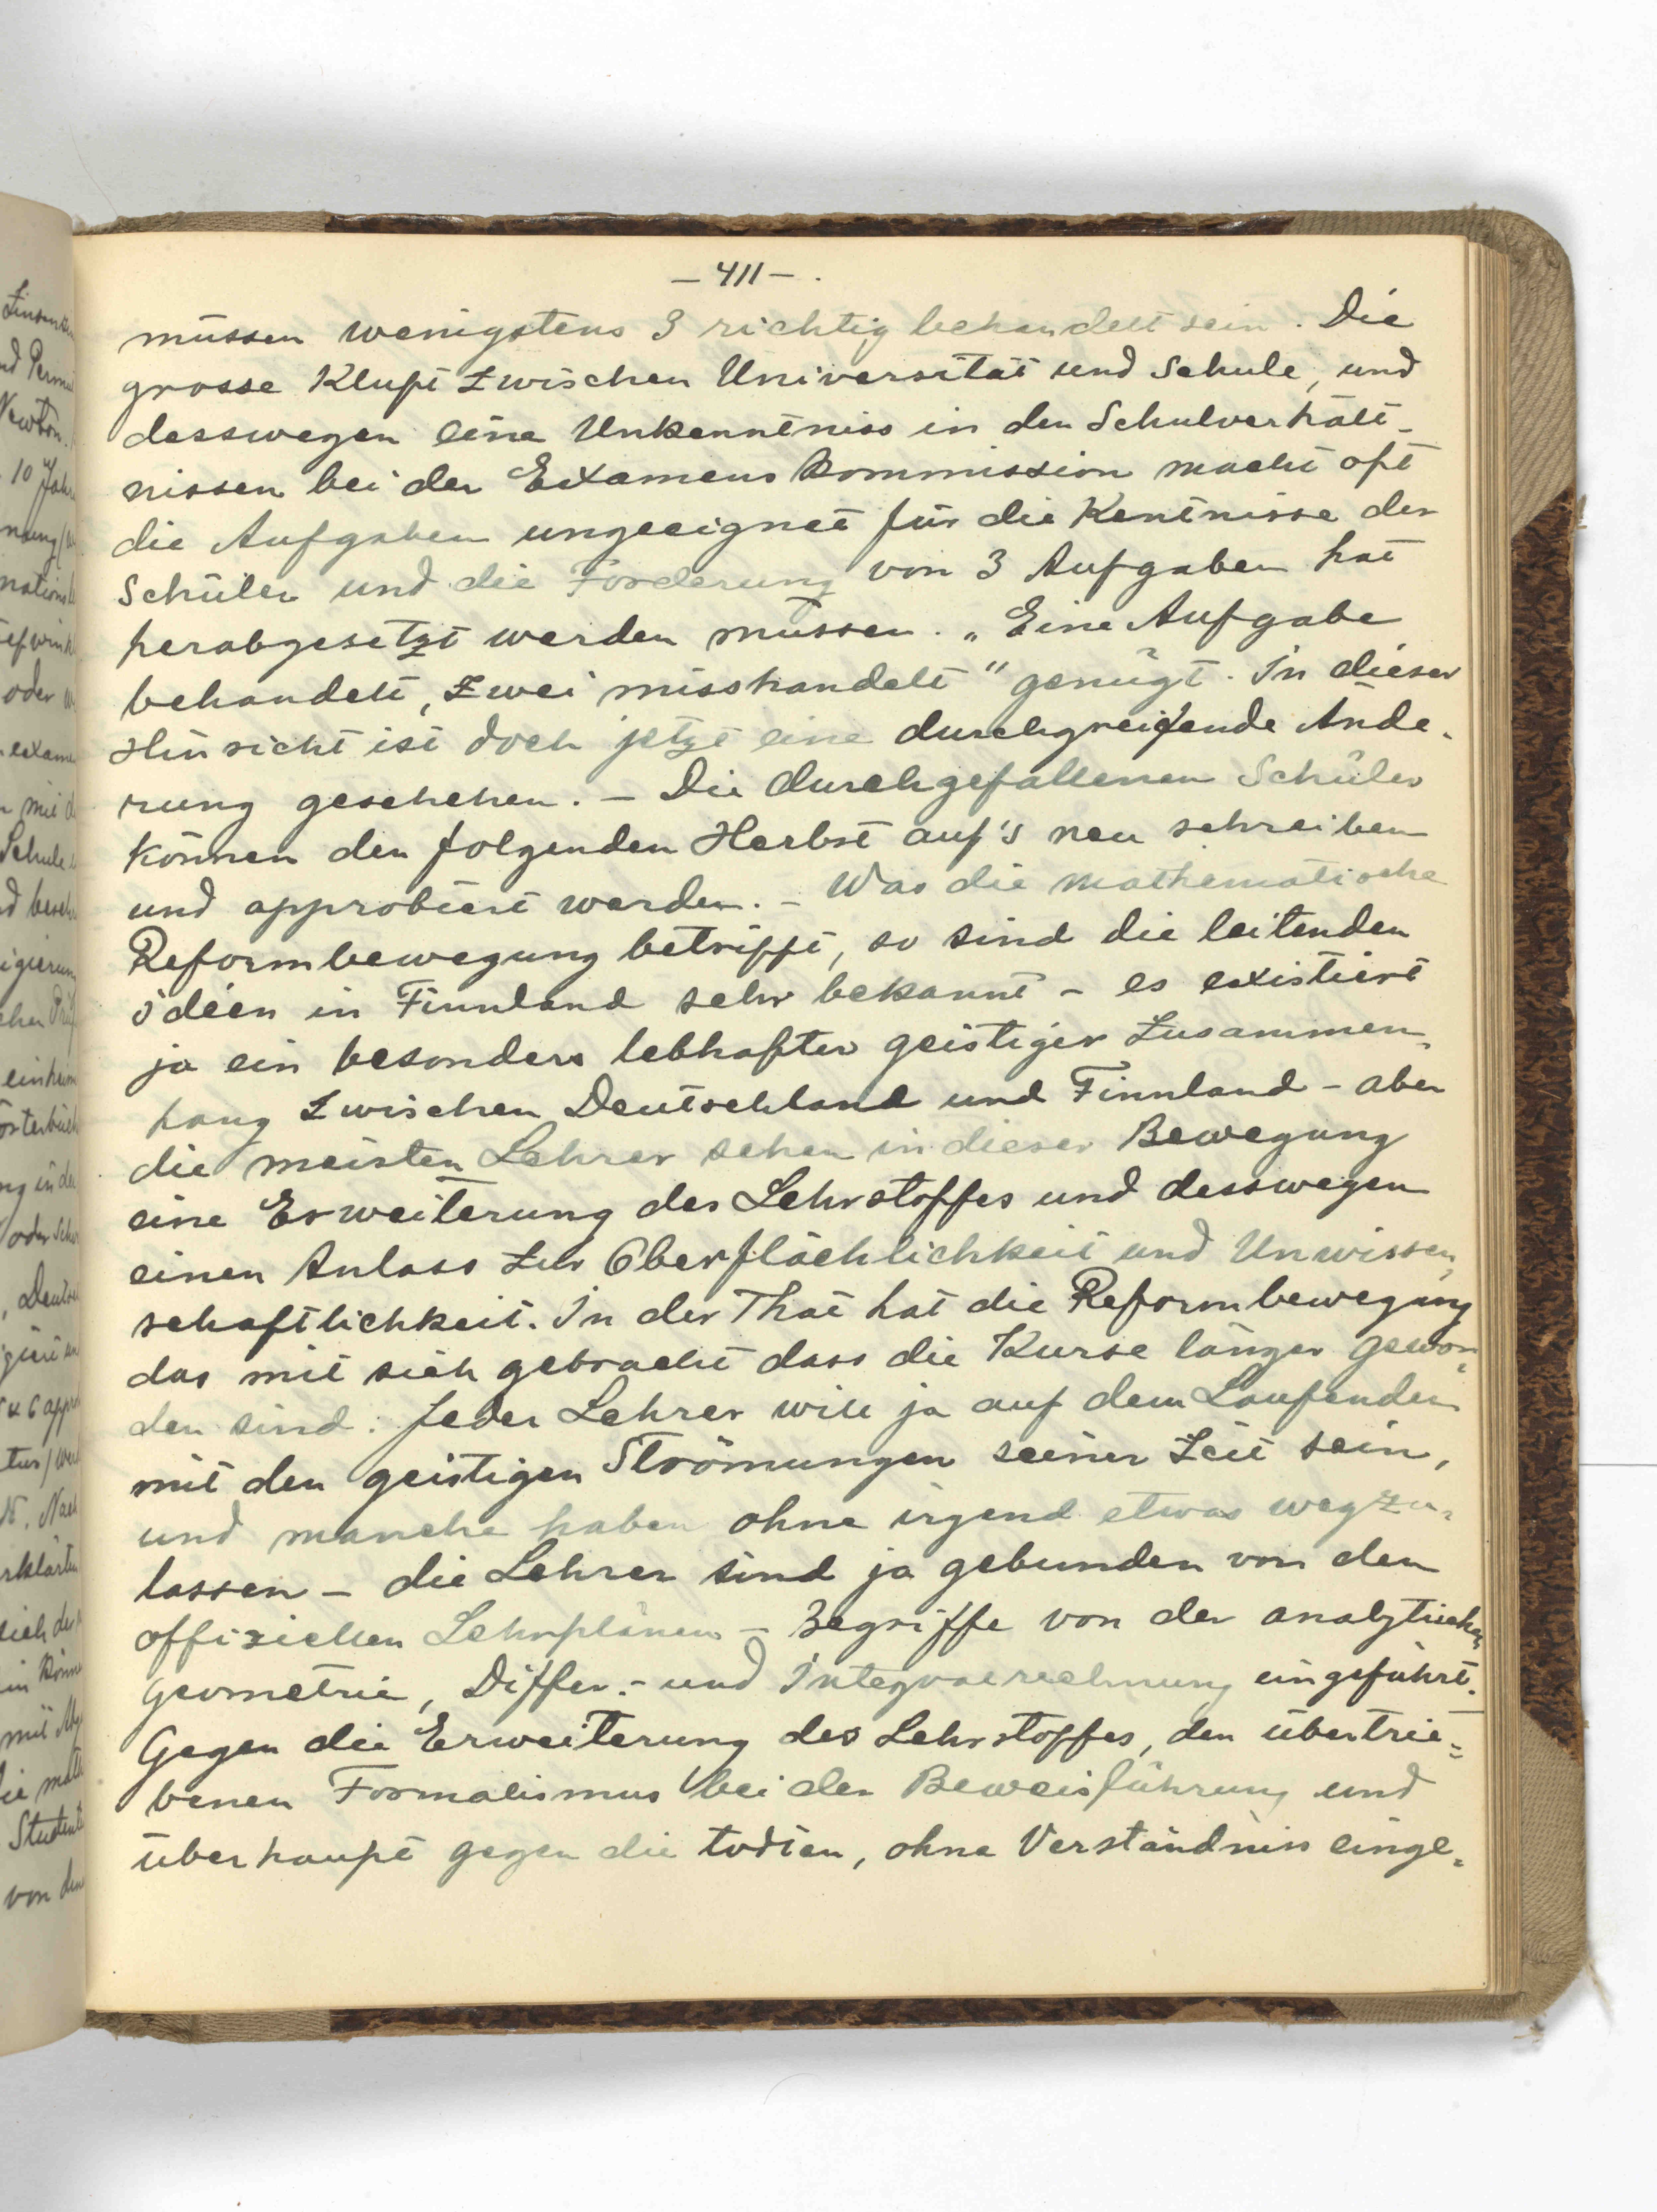 - 411 - .
müssen wenigstens 3 richtig behandelt sein. Die
grosse Kluft zwischen Universität und Schule, und
desswegen eine Unkenntniss in den Schulverhält-
nissen bei der Examens kommission macht oft
die Aufgaben ungeeignet für die Kentnisse der
Schüler und die Forderung von 3 Aufgaben hat
herabgesetzt werden müssen. „Eine Aufgabe
behandelt, zwei misshandelt" genügt. In dieser
Hinsicht ist doch jetzt eine durchgreifende Ände-
rung geschehen. - Die durchgefallenen Schüler
können den folgenden Herbst auf's neu schreiben
und approbiert werden. - Was die mathematische
Reformbewegung betrifft, so sind die leitenden
Idéen in Finnland sehr bekannt - es existiert
ja ein besonders lebhafter geistiger Zusammen-
hang zwischen Deutschland und Finnland - aber
die meisten Lehrer sehen in dieser Bewegung
eine Erweiterung des Lehrstoffes und desswegen
einen Anlass zur Oberflächlichkeit und Unwissen-
schaftlichkeit. In der That hat die Reformbewegung
das mit sich gebracht dass die Kurse länger gewor-
den sind. Jeder Lehrer will ja auf dem Laufenden
mit den geistigen Strömungen seiner Zeit sein,
und manche haben ohne irgend etwas wegzu-
lassen - die Lehrer sind ja gebunden von den
offiziellen Lehrplänen - Begriffe von der analytischen
Geometrie, Differ.- und Integralrechnung eingeführt.
Gegen die Erweiterung des Lehrstoffes, den übertrie=
benen Formalismus bei der Beweisführung und
überhaupt gegen die todten, ohne Verständniss einge=